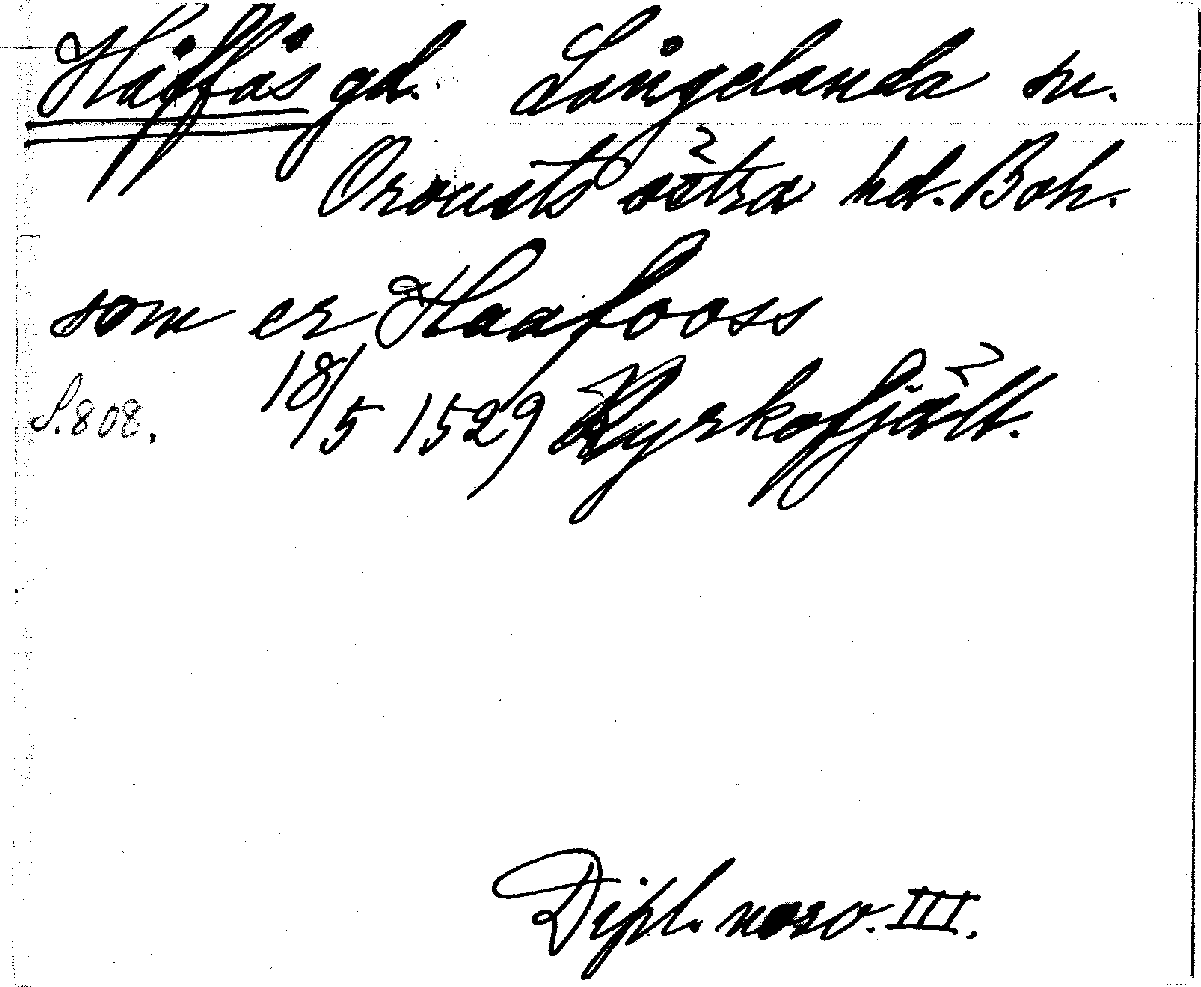 Håffås gd. Långelanda sn.
Orousts östra hd. Boh.
som er Haafooss
S. 808. 18/5 1529 Kyrkofjäll.
Dipl. norv. III.